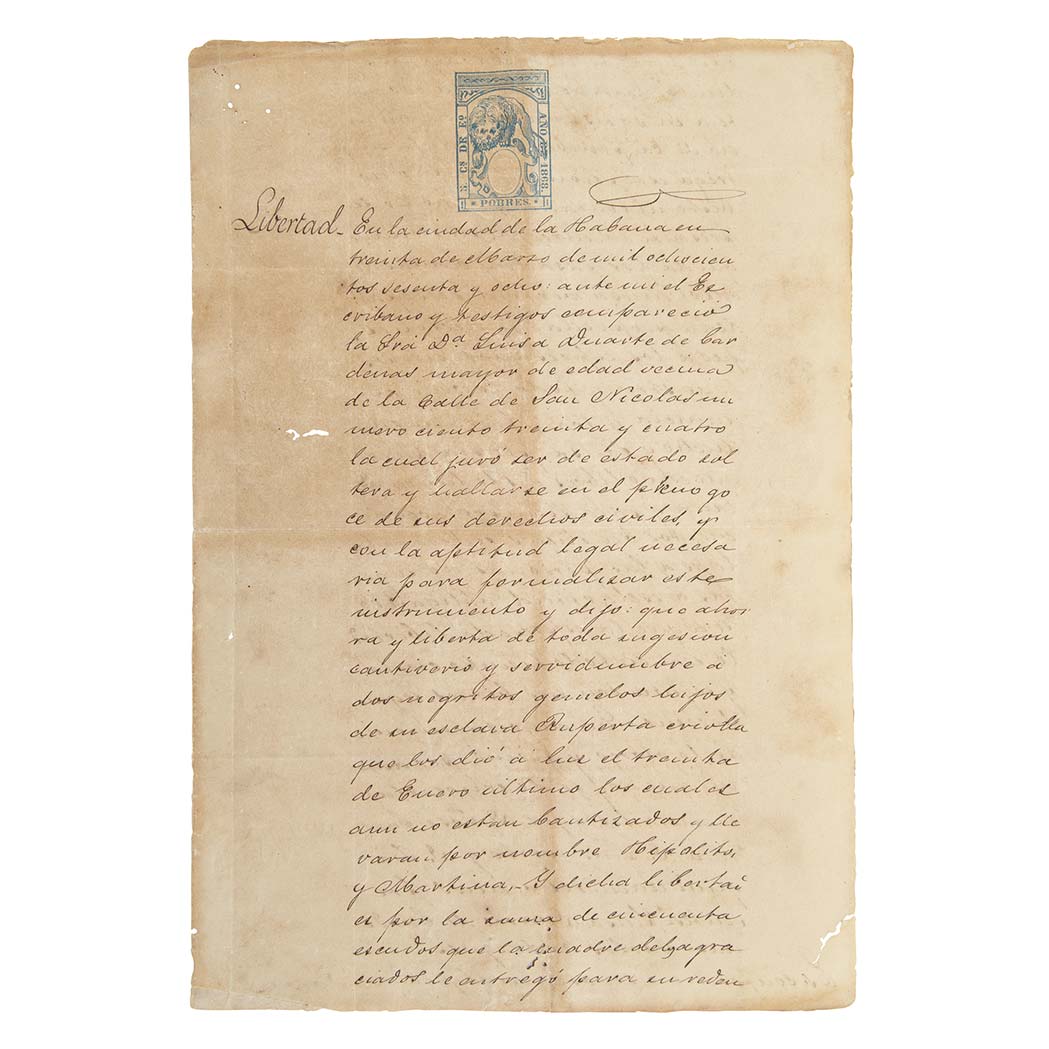 5. Cs DE Eo.
AÑO DE 1868.
* POBRES. *
Libertad - En la ciudad de la Habana en
treinta de Marzo de mil ochocien
tos sesenta y ocho: ante mi el Es
cribano y testigos compareció
la Srá Dª Luisa Duarte de Car
denas mayor de edad vecina
de la Calle de San Nicolas nu
mero ciento treinta y cuatro
la cual juró ser de estado sol
tera y hallarse en el pleno go
ce de sus derechos civiles, y
con la aptitud legal necesa
ria para formalizar este
instrumento y dijo: que ahor
ra y liberta de toda sugesion
cautiverio y servidumbre á
dos negritos gemelos hijos
de su esclava Ruperta criolla
que los dió á luz el treinta
de Enero ultimo los cuales
aun no estan bautizados y lle
varan por nombre Hipolito,
y Martina,- Y dicha libertad
es por la suma de cincuenta
escudos que la madre de los agra
ciados le entregó para su reden